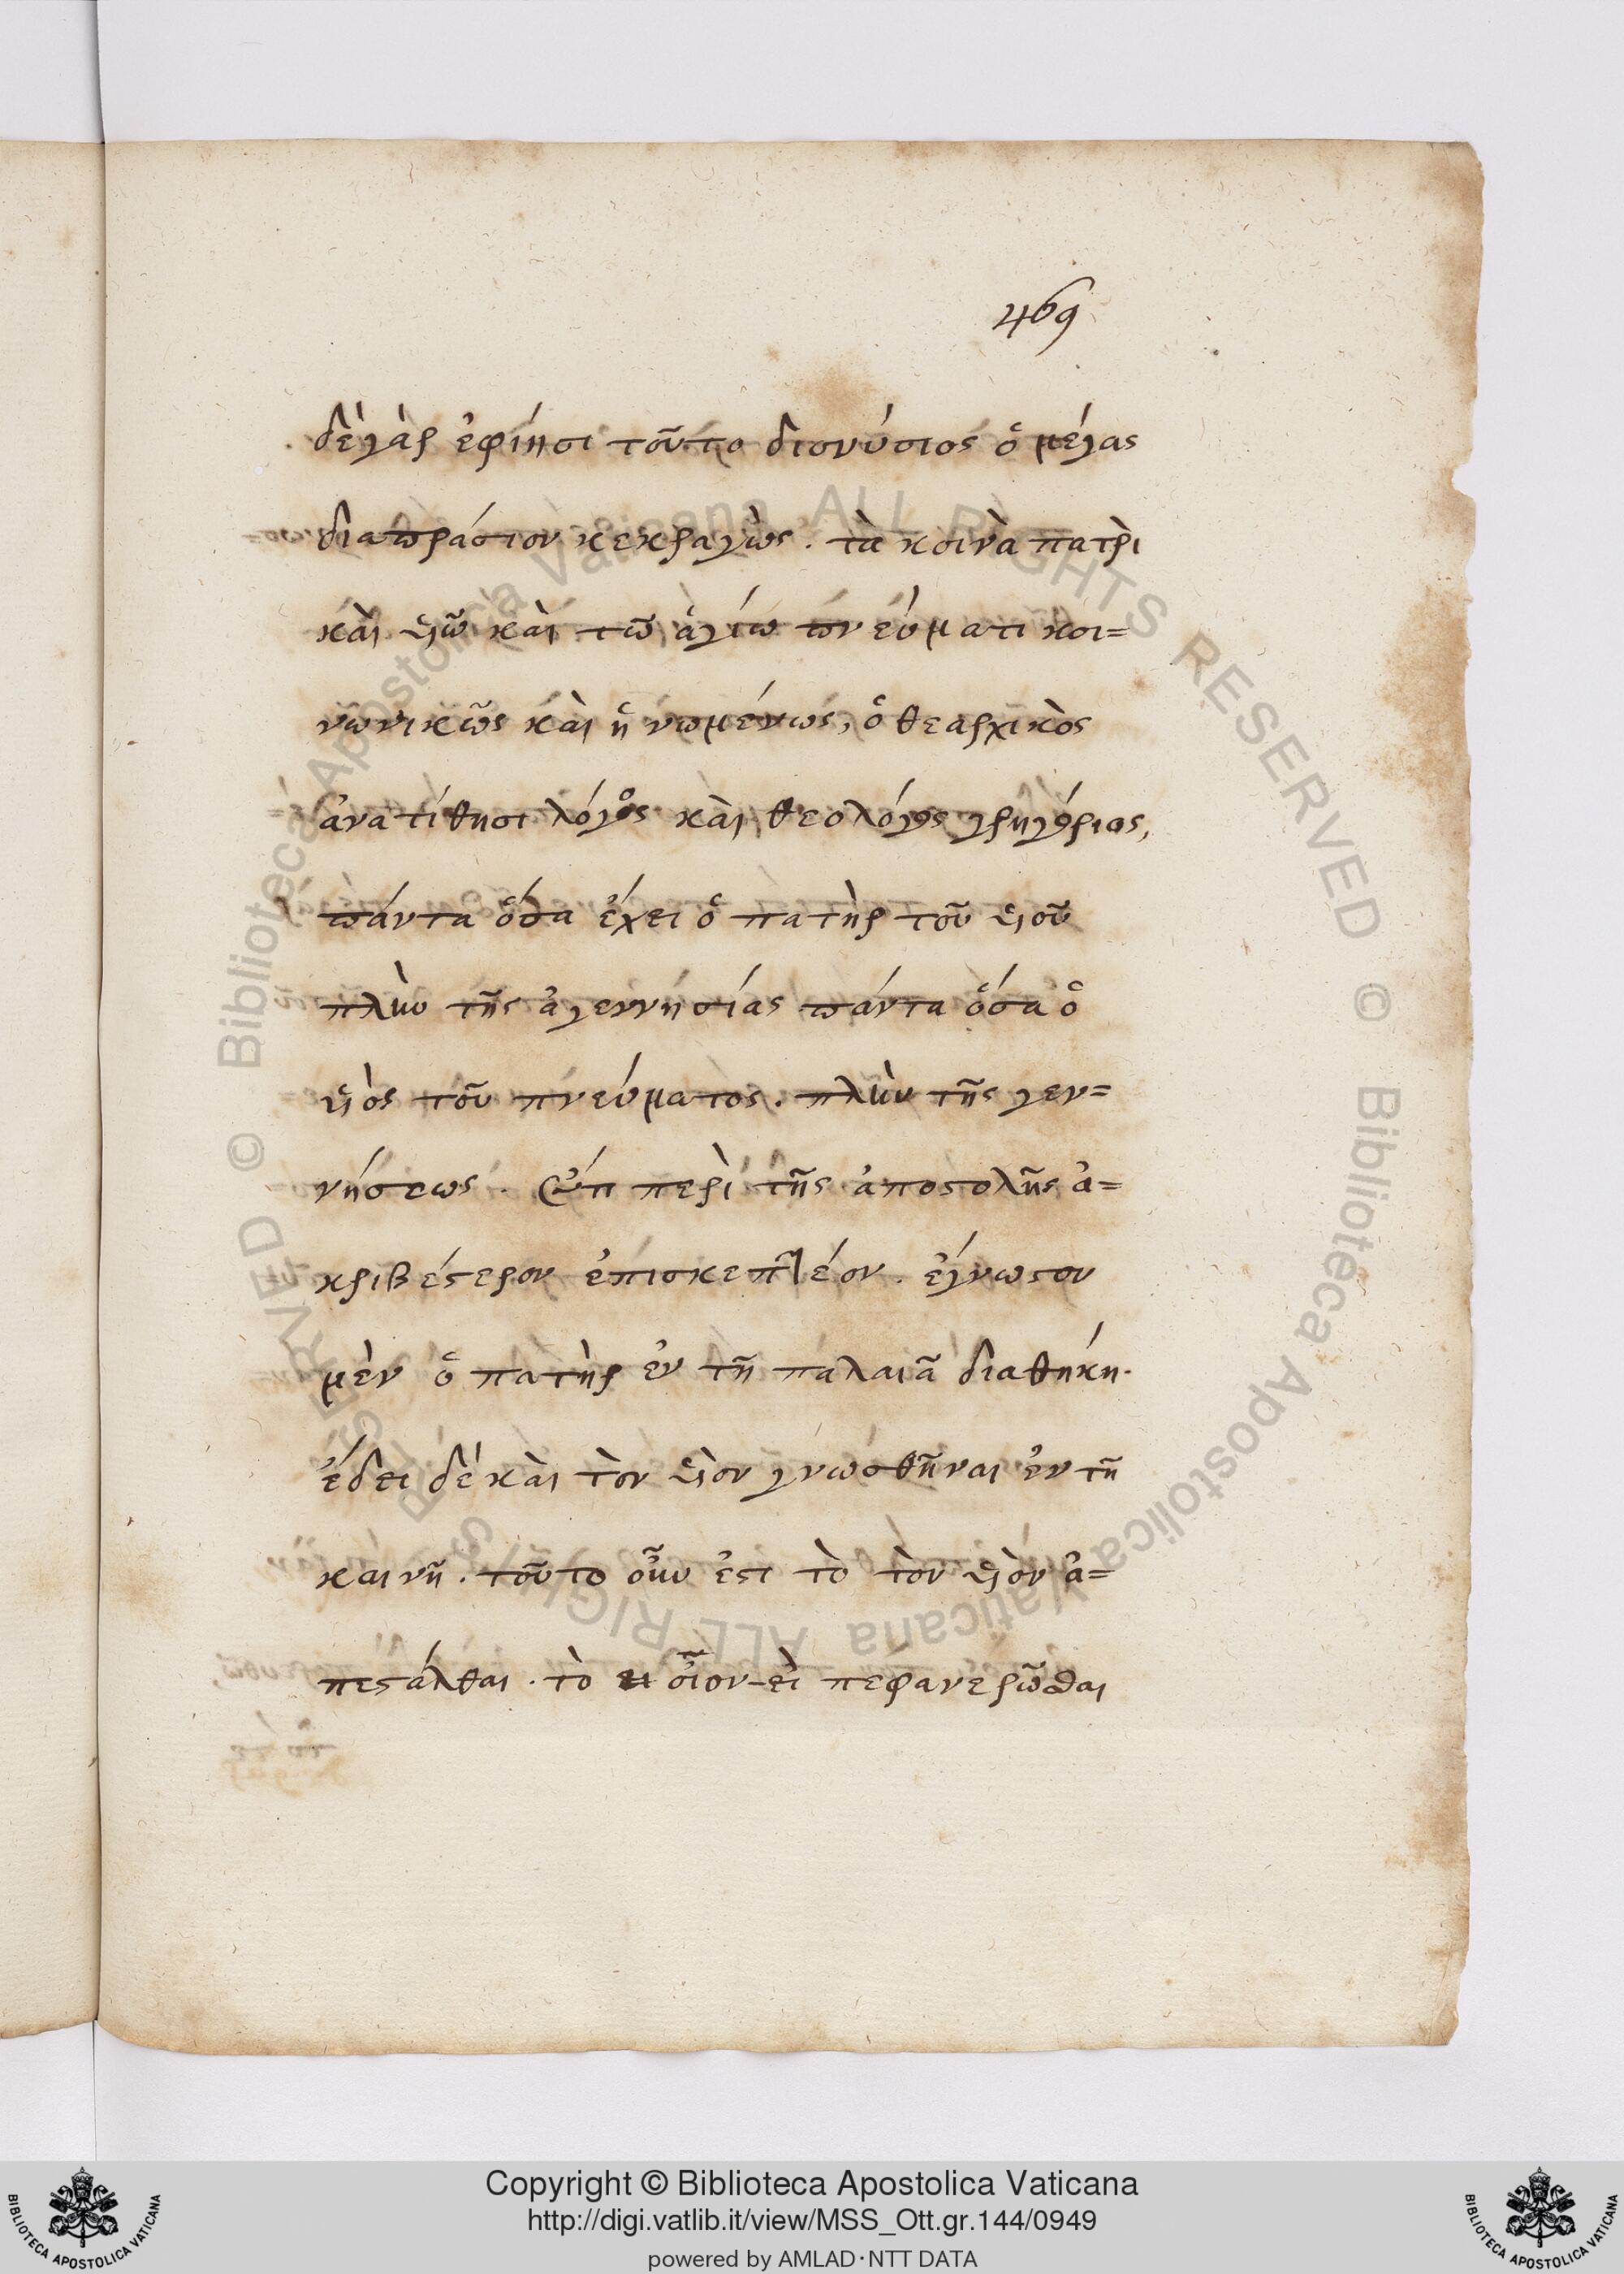 469
δὲ γὰρ ἐφίησι τοῦτο διονύσιος ὁ μέγας
διαπράσιον κεκραγὼς. τὰ κοινὰ πατρὶ
καὶ υἱῶ καὶ τῶ ἁγίω πνεύματι κοι=
νωνικῶς καὶ ἡνωμένως, ὁ θεαρχικὸς
ἀνατίθησι λόγος καὶ θεολόγος γρηγόριος,
πάντα ὅσα ἔχει ὁ πατὴρ τοῦ υἱοῦ
πλὴν τῆς ἀγεννησίας πάντα ὅσα ὁ
υἱὸς τοῦ πνεύματος. πλὴν τῆς γεν=
νήσεως. ἔτι περὶ τῆς ἀποστολῆς ἀ=
κριβέστερον ἐπισκεπτέον. ἔγνωστον
μὲν ὁ πατὴρ ἐν τῆ παλαιᾶ διαθήκη.
ἔδει δὲ καὶ τὸν υἱὸν γνωσθῆναι ἐν τῆ
καινῆ. τοῦτο οὖν ἐστι τὸ τὸν υἱὸν ἀ=
πεστάλθαι. τὸ οἷον εἰ πεφανερῶσθαι
Copyright © Biblioteca Apostolica Vaticana
http://digi.vatlib.it/view/MSS_Ott.gr.144/0949
powered by AMLAD·NTT DATA
© Biblioteca Apostolica Vaticana ALL RIGHTS RESERVED
© Biblioteca Apostolica Vaticana ALL RIGHTS RESERVED
BIBLIOTECA APOSTOLICA VATICANA
BIBLIOTECA APOSTOLICA VATICANA